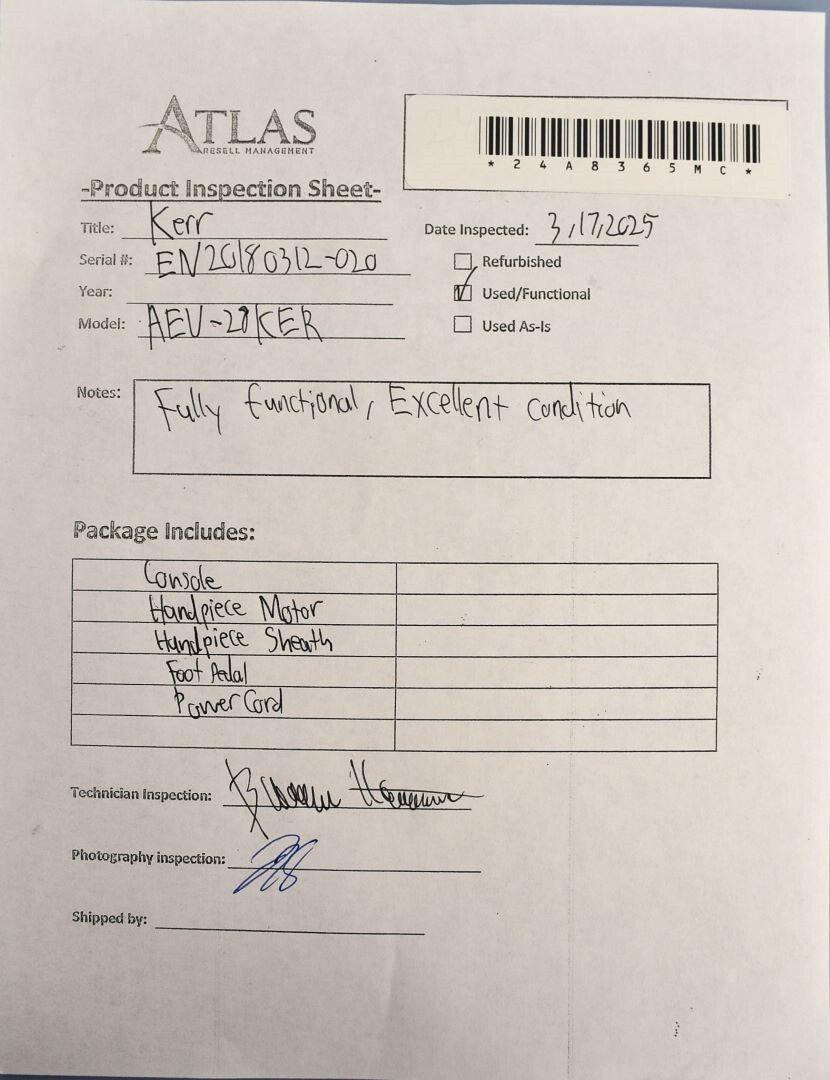 ATLAS
RESELL MANAGEMENT
*24A8365MC*
-Product Inspection Sheet-
Title: Kerr
Date Inspected: 3/17/2025
Serial #: EN20180312-020
Refurbished
Year:
Used/Functional
Model: AEU-28KER
Used As-Is
Notes: Fully functional, Excellent condition
Package Includes:
Console
Handpiece Motor
Handpiece Sheath
Foot Pedal
Power Cord
Technician Inspection:
Photography inspection:
Shipped by: